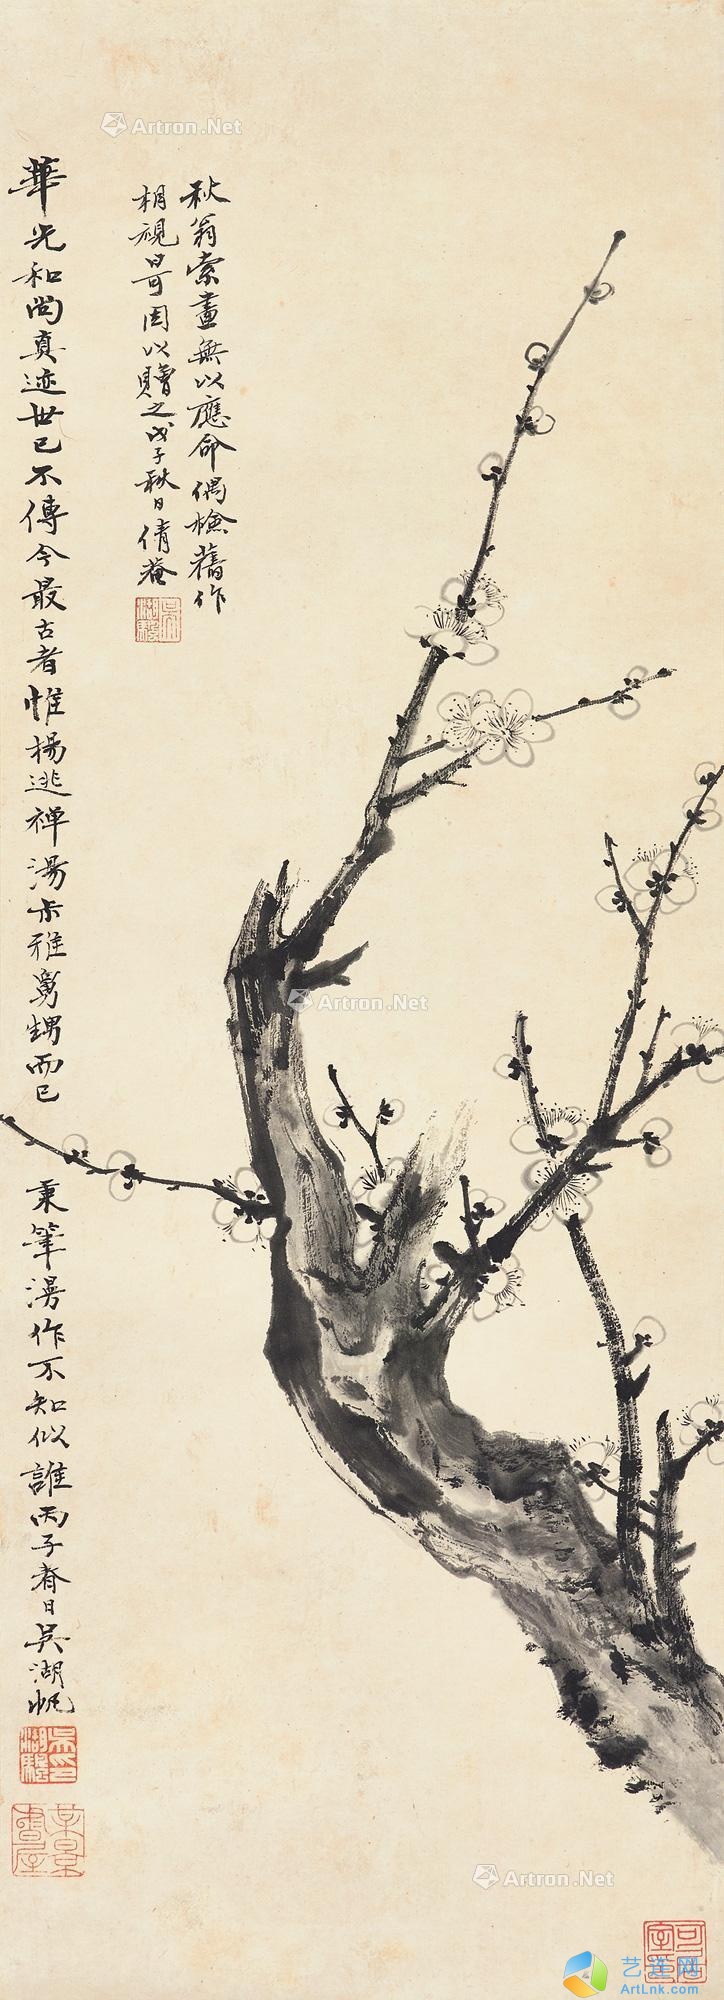 華光和尚真迹世已不傳今最古者惟楊逃禪湯叔雅舅甥而已 秉筆漫作不知似誰丙子春日吳湖帆
秋翁索畫無以應命偶檢舊作
相視可因以贈之戊子秋日倩菴
Artron.Net
Artron.Net
Artron.Net
艺莲网
ArtLnk.com